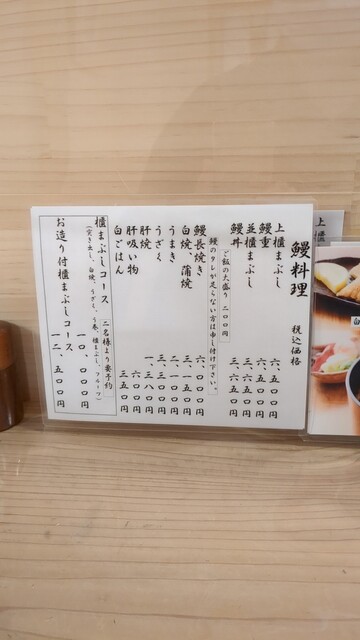 鰻料理 税込価格
上櫃まぶし 六、五〇〇円
鰻重 六、五〇〇円
並櫃まぶし 三、六五〇円
鰻丼 三、六五〇円
ご飯の大盛り 二〇〇円
鰻のタレが足らない方は申し付け下さい。
鰻長焼き 六、〇〇〇円
白焼、蒲焼 三、一五〇円
うまき 二、一〇〇円
うざく 三、三〇〇円
肝焼 一、三八〇円
肝吸い物 六〇〇円
白ごはん 三五〇円
櫃まぶしコース 二名様より要予約
(突き出し、白焼、うざく、う巻、櫃まぶし、フルーツ)
一〇、〇〇〇円
お造り付櫃まぶしコース
一二、五〇〇円
上櫃